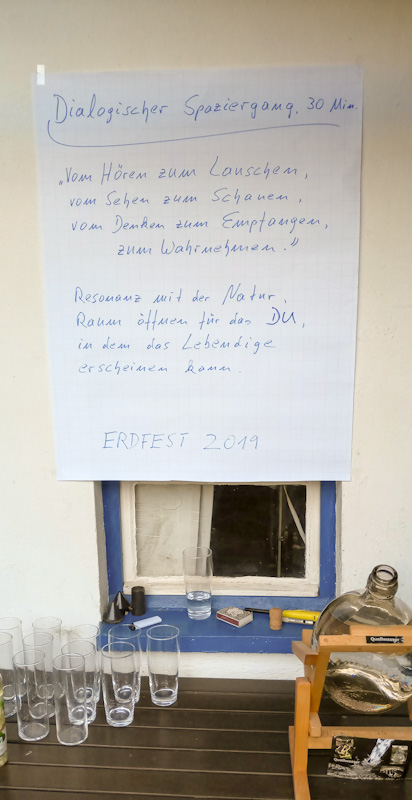 Dialogischer Spaziergang. 30 Min.
„Vom Hören zum Lauschen,
vom Sehen zum Schauen,
vom Denken zum Empfangen,
zum Wahrnehmen."
Resonanz mit der Natur.
Raum öffnen für das DU,
in dem das Lebendige
erscheinen kann.
ERDFEST 2019